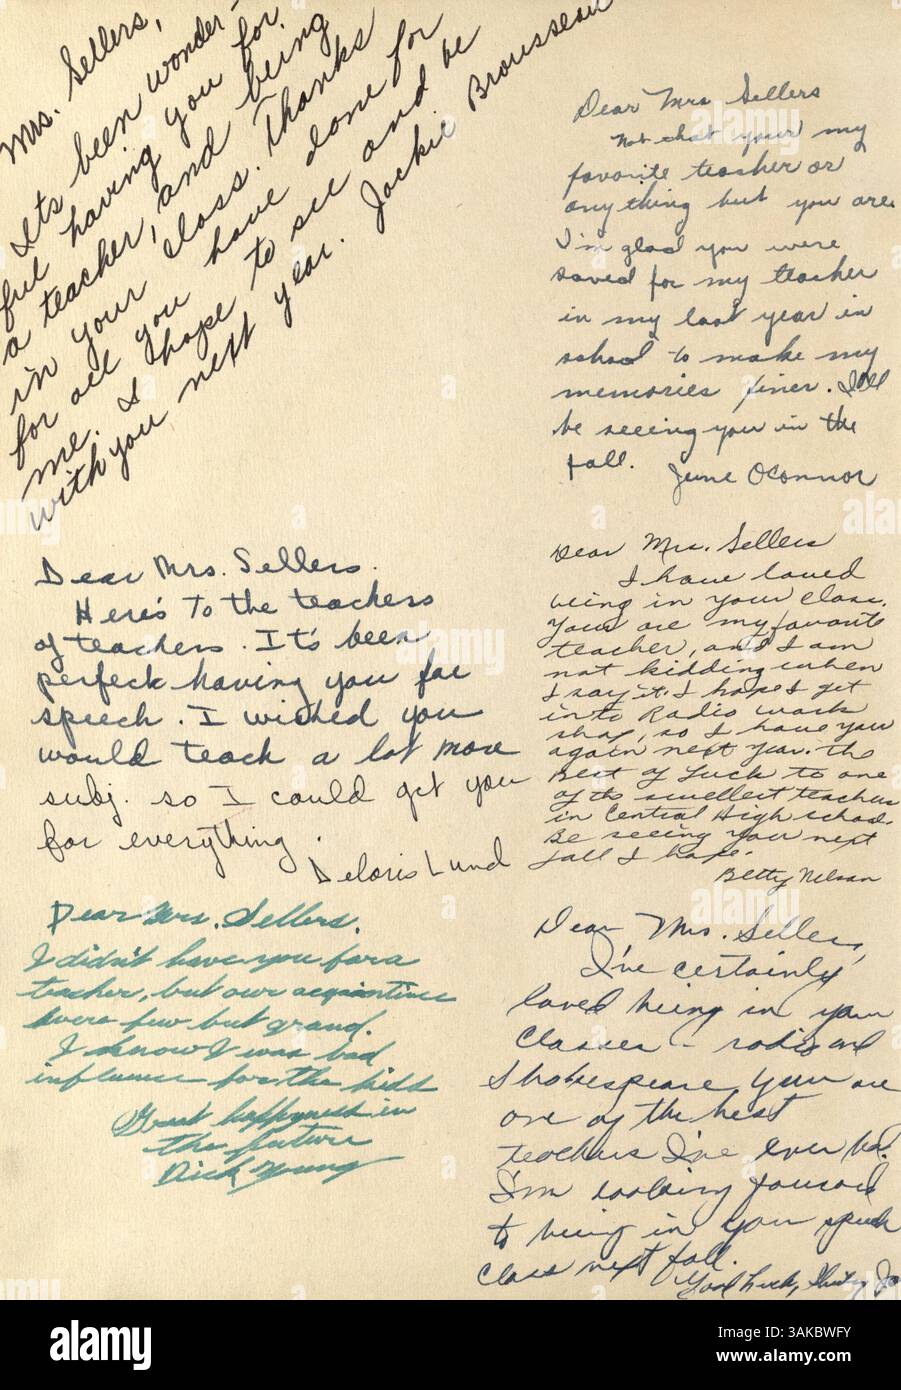 Mrs. Sellers,
Its been wonder-
ful having you for
a teacher, and being
in your class. Thanks
for all you have done for
me. I hope to see and be
with you next year. Jackie Brousseau
Dear Mrs Sellers
Not that your my
favorite teacher or
anything but you are.
I'm glad you were
saved for my teacher
in my last year in
school to make my
memories finer. I'll
be seeing you in the
fall.
June OConnor
Dear Mrs. Sellers.
Here's To the teachers
of teachers. It's been
perfeck having you for
speech. I wished you
would teach a lot more
subj. so I could get you
for everything.
Deloris Lund
Dear Mrs. Sellers
I have loved
being in your class.
Your are my favorite
teacher, and I am
not kidding when
I say it. I hope I get
into Radio work
shop, so I have you
again next year. the
Best of Luck to one
of the swellest teachers
in Central High school.
Be seeing you next
fall I hope.
Betty Nelson
Dear Mrs. Sellers.
I didn't have you for a
teacher, but our acquaintince
were few but grand.
I know I was bad
influence for the kids
Great happyness in
the future
Dick Young
Dear Mrs. Sellers,
I've certainly
loved being in your
classes - radio and
Shakespeare. You are
one of the best
teachers I've ever had.
I'm looking forward
to being in your speech
class next fall.
Good luck, Shirley
alamy
Image ID: 3AKBWFY
www.alamy.com